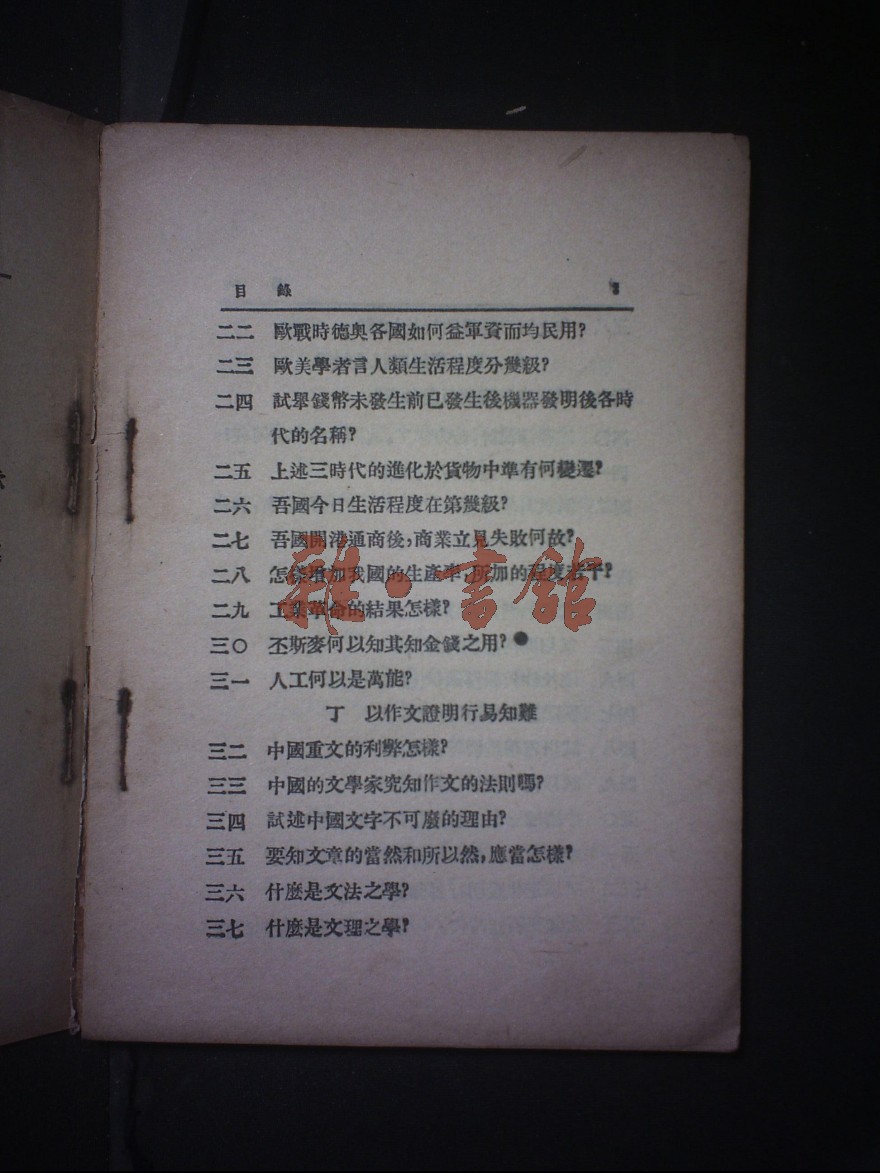 目 錄 3
二二 歐戰時德奧各國如何益軍資而均民用?
二三 歐美學者言人類生活程度分幾級?
二四 試舉錢幣未發生前已發生後機器發明後各時
代的名稱?
二五 上述三時代的進化於貨物中準有何變遷?
二六 吾國今日生活程度在第幾級?
二七 吾國開港通商後,商業立見失敗何故?
二八 怎樣增加我國的生產率,所加的程度若干?
二九 工業革命的結果怎樣?
三〇 丕斯麥何以知其知金錢之用?
三一 人工何以是萬能?
丁 以作文證明行易知難
三二 中國重文的利弊怎樣?
三三 中國的文學家究知作文的法則嗎?
三四 試述中國文字不可廢的理由?
三五 要知文章的當然和所以然,應當怎樣?
三六 什麼是文法之學?
三七 什麼是文理之學?
雅·書館